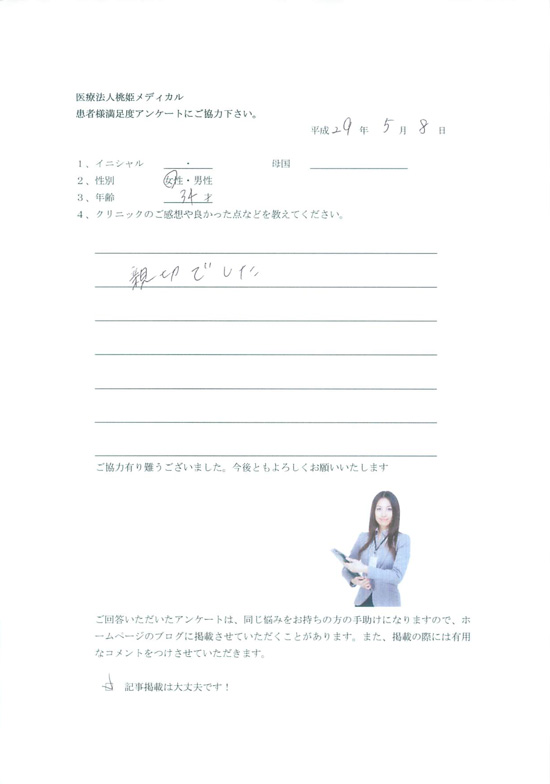 医療法人桃姫メディカル
患者様満足度アンケートにご協力下さい。
平成 29 年 5 月 8 日
1、イニシャル ・ 母国
2、性別 女性・男性
3、年齢 34 才
4、クリニックのご感想や良かった点などを教えてください。
親切でした
ご協力有り難うございました。今後ともよろしくお願いいたします
ご回答いただいたアンケートは、同じ悩みをお持ちの方の手助けになりますので、ホ
ームページのブログに掲載させていただくことがあります。また、掲載の際には有用
なコメントをつけさせていただきます。
記事掲載は大丈夫です！